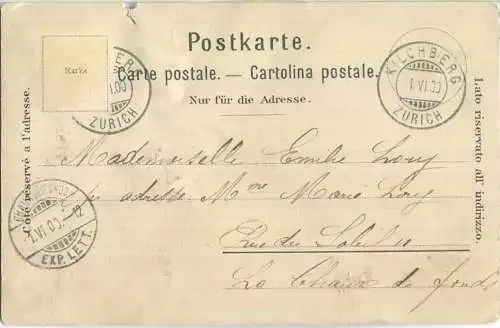 Postkarte.
Carte postale. — Cartolina postale.
Nur für die Adresse.
Marke
WER
1.00
ZÜRICH
KILCHBERG
1.VI.00
ZÜRICH
Côté réservé à l'adresse.
Lato riservato all' indirizzo.
Mademoiselle Emilie Lory
adresse Mme Marie Lory
Rue du Soleil
La Chaux de fonds
1.VI.00. 12
EXP. LETT.